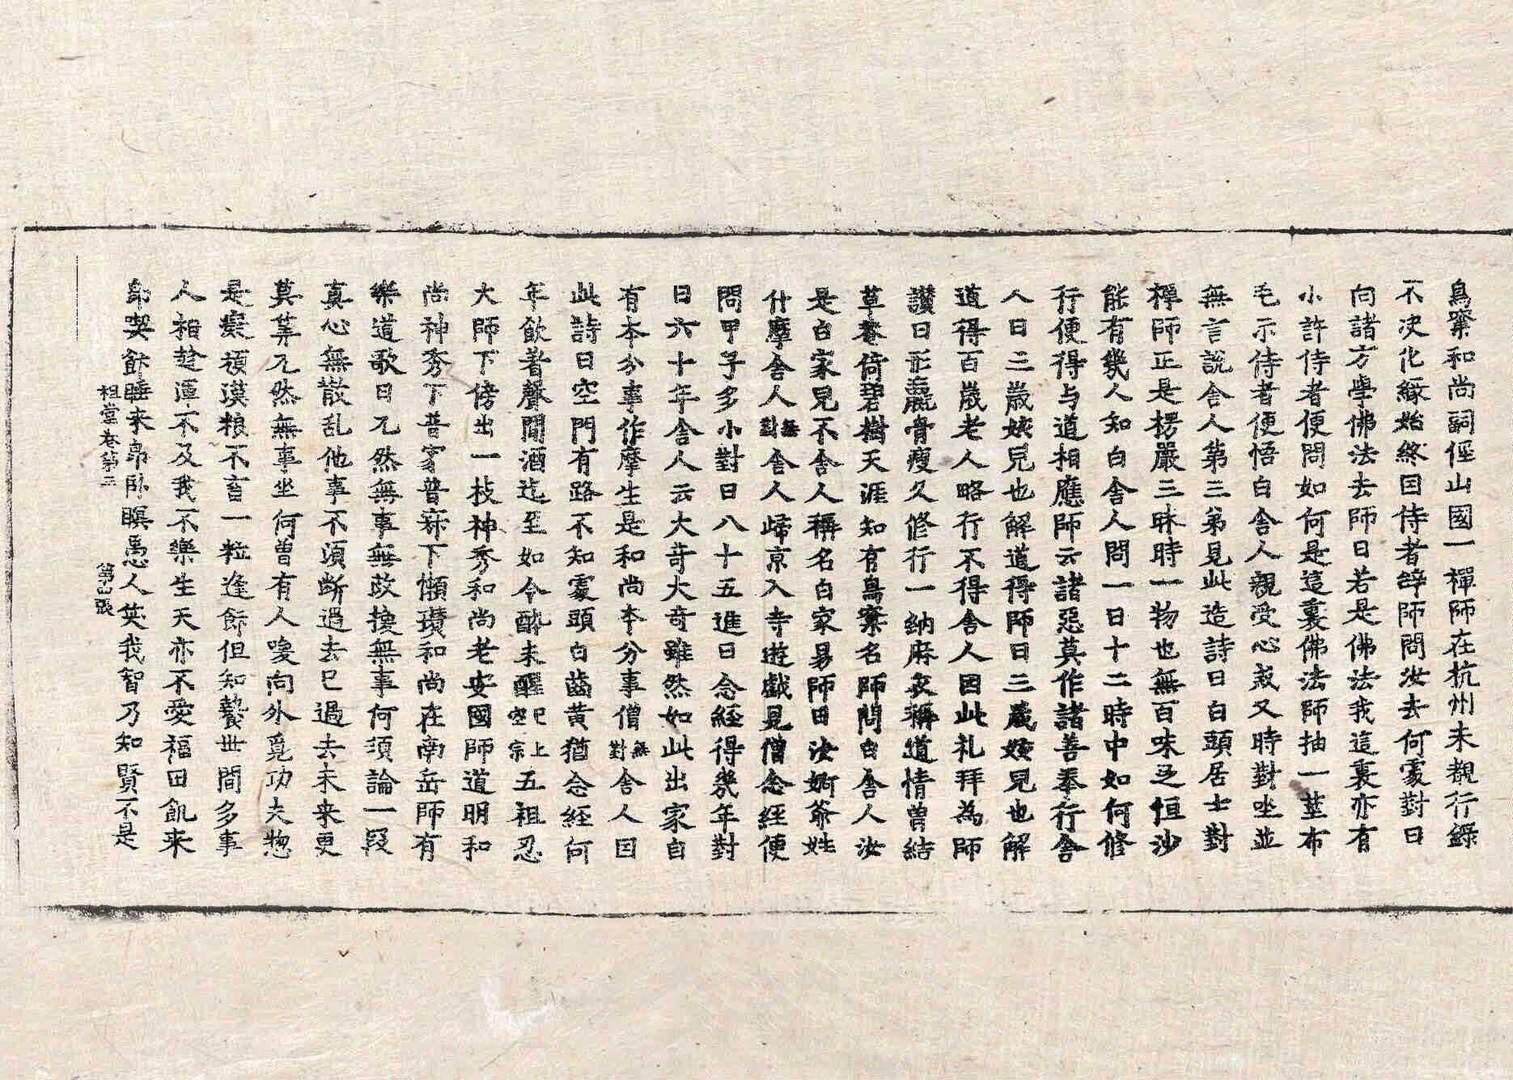 鳥窠和尚詞徑山國一禪師在杭州未覩行錄
不決化緣始終因侍者辝師問汝去何處對曰
向諸方學佛法去師曰若是佛法我這裏亦有
小許侍者便問如何是這裏佛法師抽一莖布
毛示侍者便悟白舍人親受心戒又時對坐並
無言說舍人第三弟見此造詩曰白頭居士對
禪師正是楞嚴三昧時一物也無百味足恒沙
能有幾人知白舍人問一日十二時中如何修
行便得与道相應師云諸惡莫作諸善奉行舍
人曰三歲孩兒也解道得師曰三歲孩兒也解
道得百歲老人略行不得舍人因此礼拜為師
讃曰形羸骨瘦久修行一納麻衣稱道情曽結
草菴倚碧樹天涯知有鳥窠名師問白舍人汝
是白家兒不舍人稱名白家易師曰汝婀爺姓
什摩舍人無對舍人歸京入寺遊戲見僧念經便
問甲子多小對曰八十五進曰念經得幾年對
曰六十年舍人云大奇大奇雖然如此出家自
有本分事作摩生是和尚本分事僧無對舍人因
此詩曰空門有路不知處頭白齒黃猶念經何
年飲著聲聞酒迄至如今醉未醒已上空宗五祖忍
大師下傍出一枝神秀和尚老安國師道明和
尚神秀下普寂普寂下懶瓚和尚在南岳師有
樂道歌曰兀然無事無改換無事何須論一段
真心無散乱他事不須斷過去已過去未來更
莫筭兀然無事坐何曽有人喚向外覓功夫惣
是癡頑漢粮不畜一粒逢飰但知䬹世間多事
人相趁渾不及我不樂生天亦不愛福田飢来
即喫飰睡来即臥瞑愚人笑我智乃知賢不是
祖堂卷第三　第十四張